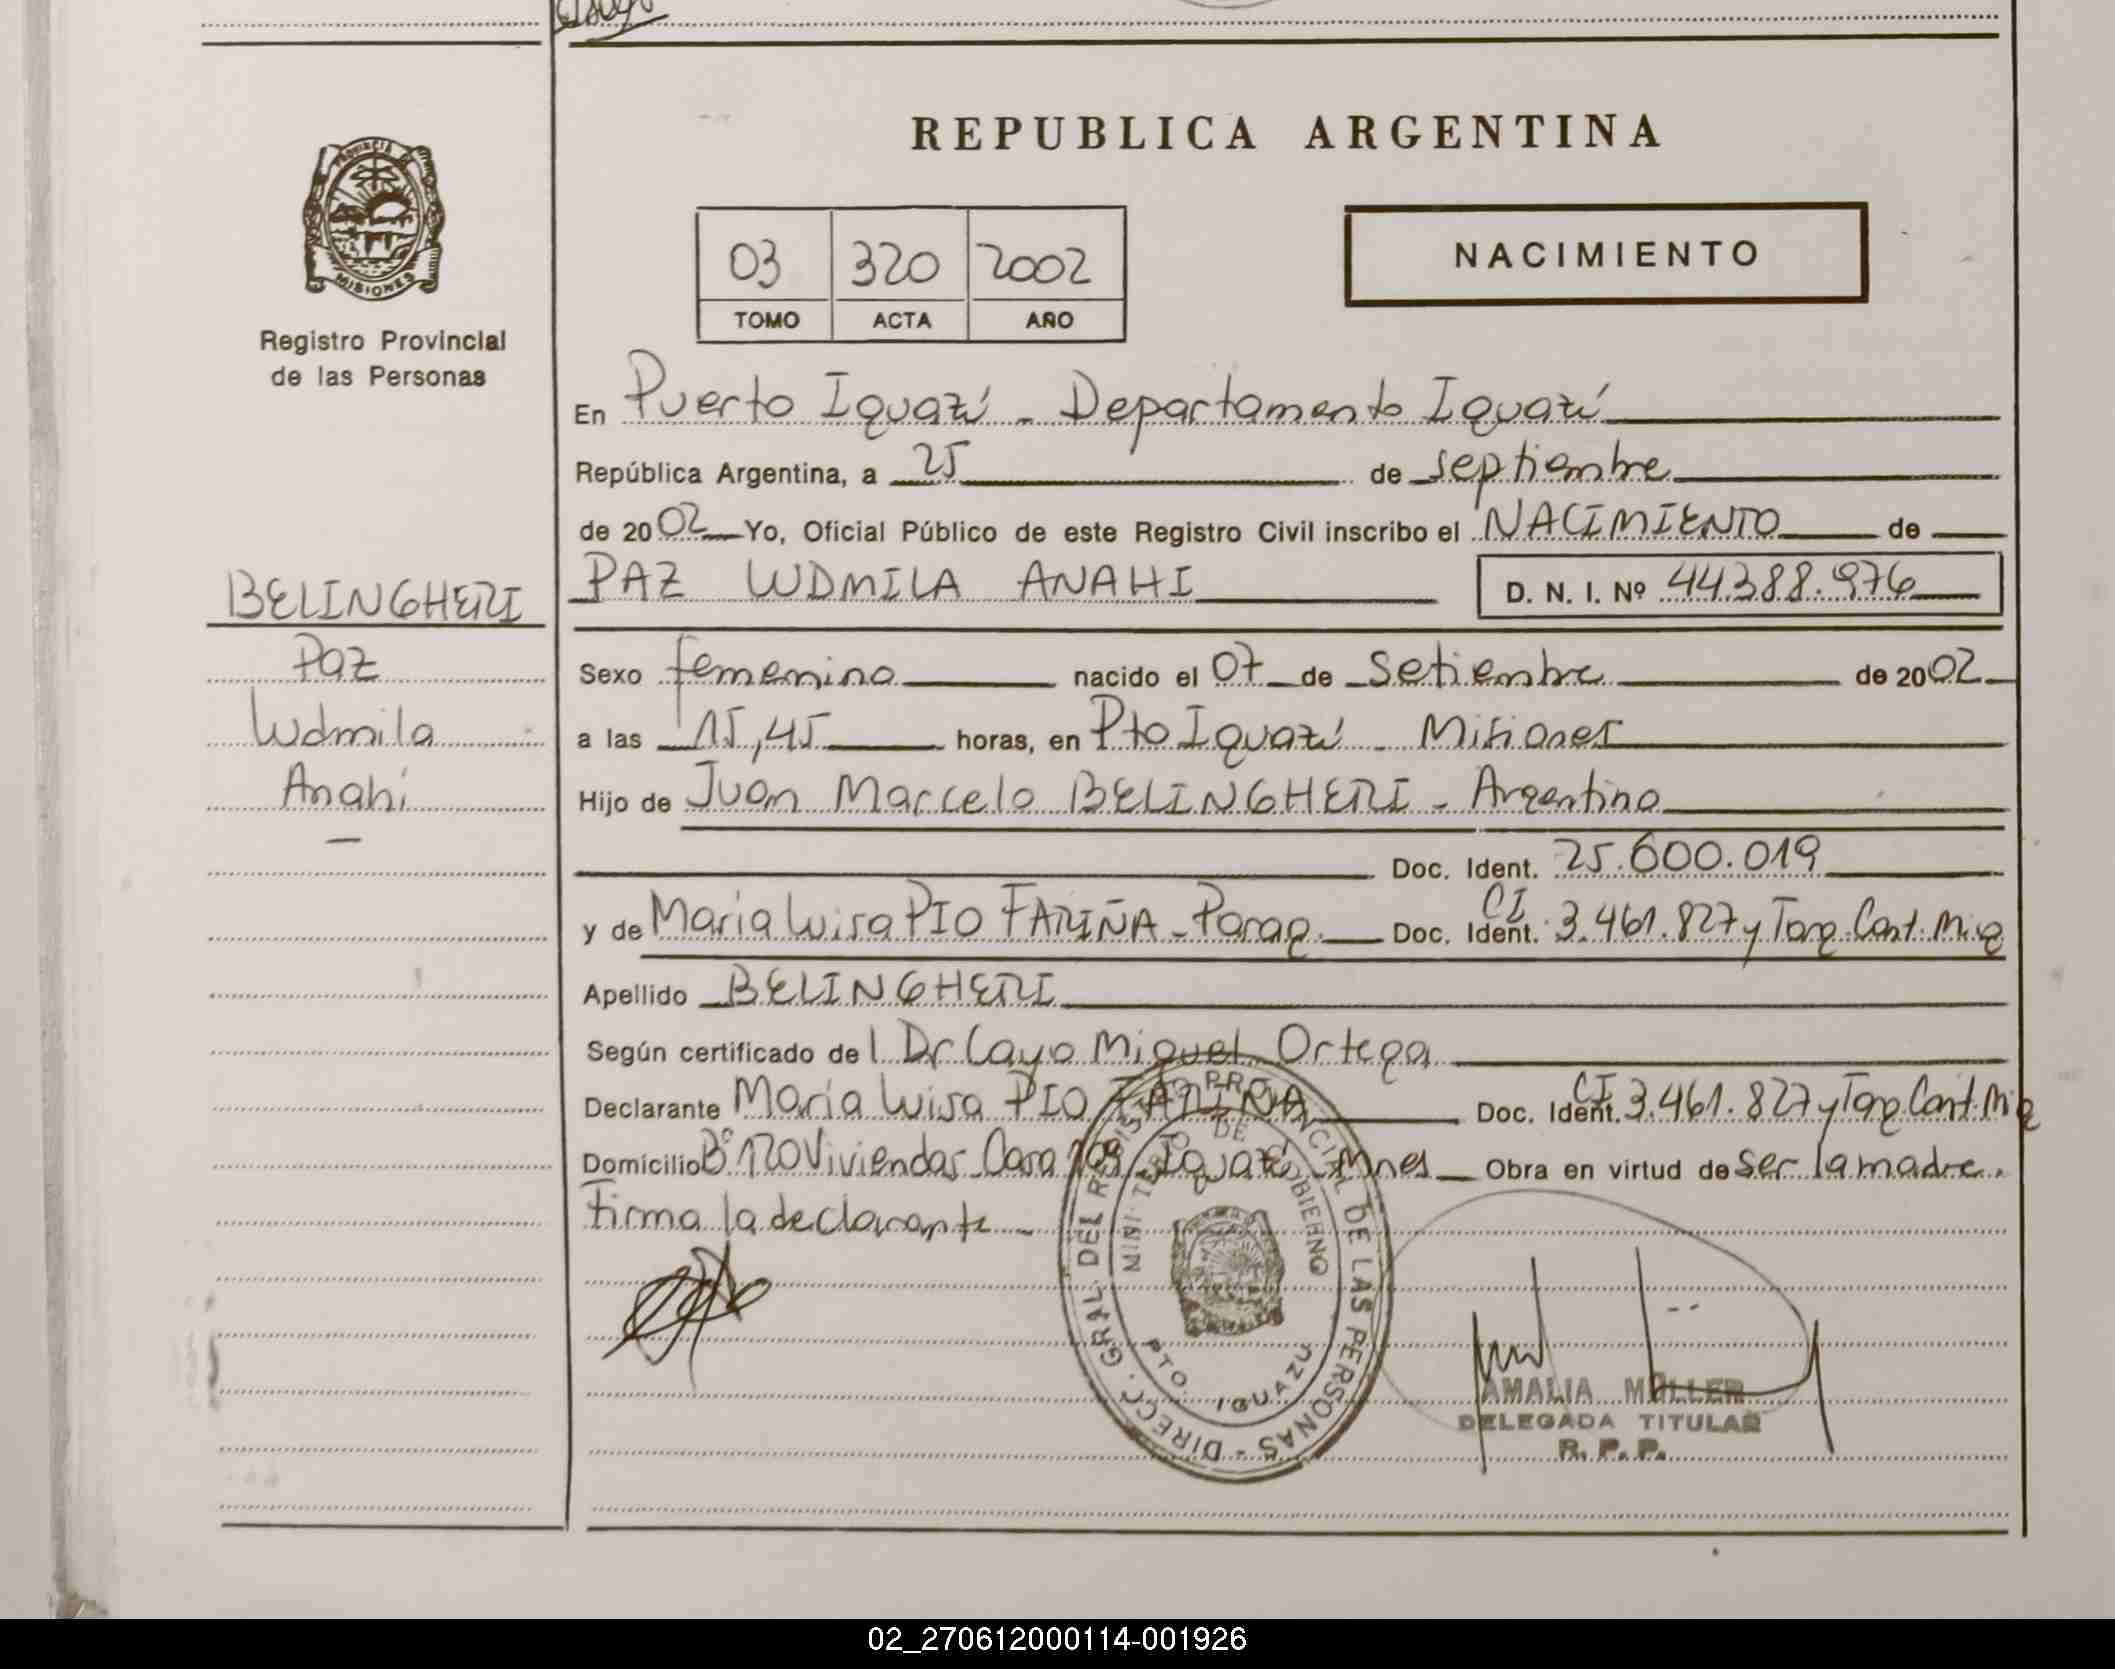 REPUBLICA ARGENTINA
PROVINCIA DE
MISIONES
Registro Provincial
de las Personas
03 320 2002
TOMO ACTA AÑO
NACIMIENTO
En Puerto Iguazú - Departamento Iguazú
República Argentina, a 25 de septiembre
de 2002 Yo, Oficial Público de este Registro Civil inscribo el NACIMIENTO de
PAZ LUDMILA ANAHI D. N. I. Nº 44.388.976
BELINGHERI
Paz
Ludmila
Anahí
Sexo femenino nacido el 07 de setiembre de 2002
a las 15,45 horas, en Pto Iguazú - Misiones
Hijo de Juan Marcelo BELINGHERI - Argentino
Doc. Ident. 25.600.019
y de María Luisa PIO FARIÑA - Parag. Doc. Ident. CI 3.461.827 y Tarq. Cart. Mig
Apellido BELINGHERI
Según certificado del Dr Cayo Miguel Ortega
Declarante María Luisa PIO FARIÑA Doc. Ident. CI 3.461.827 y Tarq Cart. Mig
Domicilio Bº 120 Viviendas Casa Iguazú - Mnes Obra en virtud de ser la madre.
Firma la declarante -
DIRECC. GRAL. DEL REGISTRO PROVINCIAL DE LAS PERSONAS -
MINISTERIO DE GOBIERNO
PTO. IGUAZU
AMALIA MÜLLER
DELEGADA TITULAR
R. P. P.
02_270612000114-001926